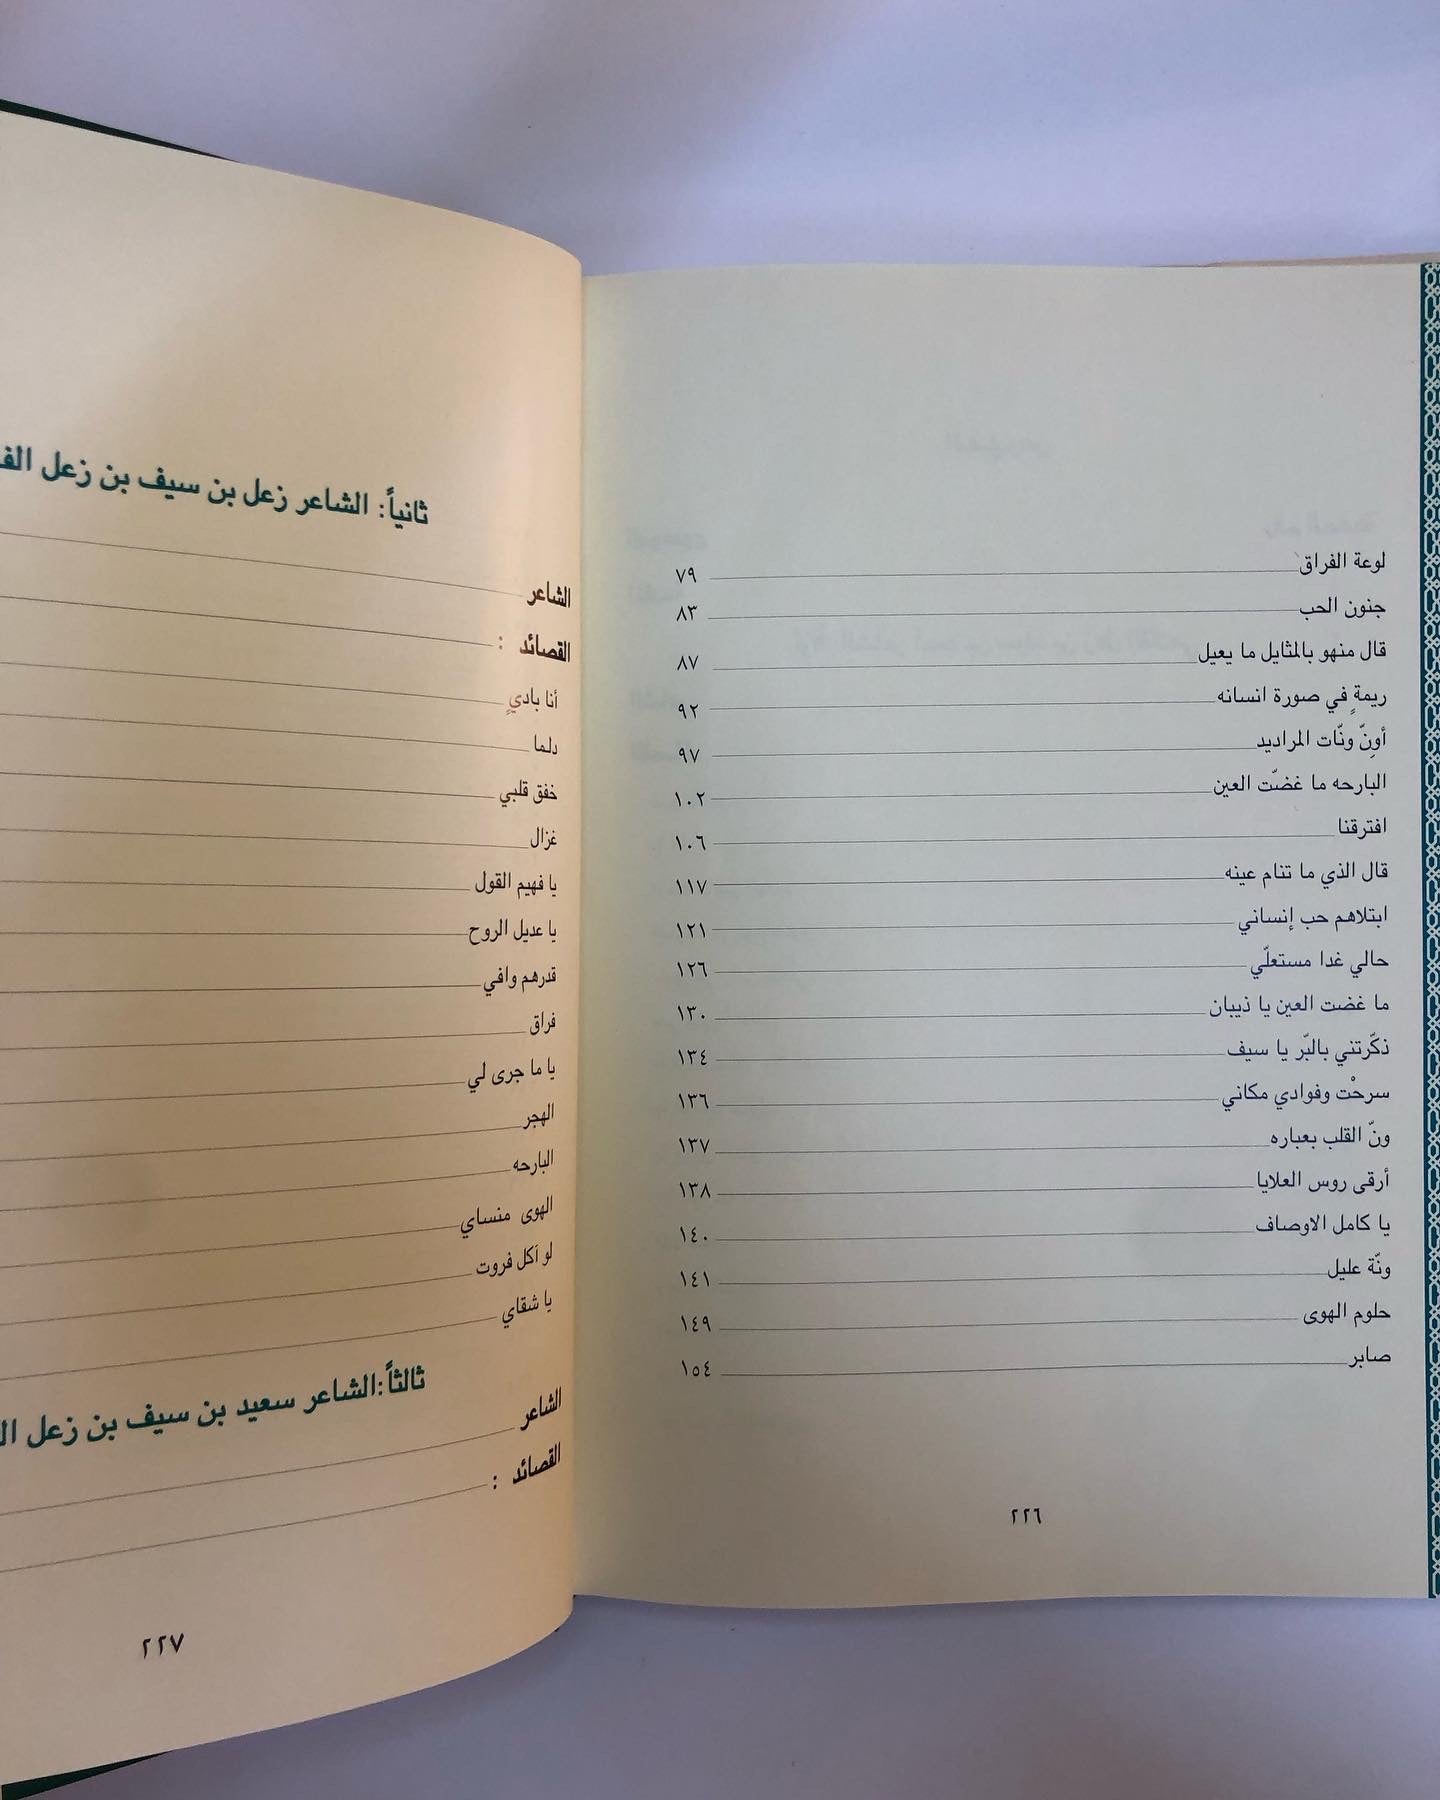 لوعة الفراق ٧٩
جنون الحب ٨٣
قال منهو بالمثايل ما يعيل ٨٧
ريمةٍ في صورة انسانه ٩٢
أونّ ونّات المراديد ٩٧
البارحه ما غضّت العين ١٠٢
افترقنا ١٠٦
قال الذي ما تنام عينه ١١٧
ابتلاهم حب إنساني ١٢١
حالي غدا مستعلّي ١٢٦
ما غضت العين يا ذيبان ١٣٠
ذكّرتني بالبّر يا سيف ١٣٤
سرحْت وفوادي مكاني ١٣٦
ونّ القلب بعباره ١٣٧
أرقى روس العلايا ١٣٨
يا كامل الاوصاف ١٤٠
ونّة عليل ١٤١
حلوم الهوى ١٤٩
صابر ١٥٤
٢٢٦
ثانياً: الشاعر زعل بن سيف بن زعل
الشاعر
القصائد :
أنا باديٍ
دلما
خفق قلبي
غزال
يا فهيم القول
يا عديل الروح
قدرهم وافي
فراق
يا ما جرى لي
الهجر
البارحه
الهوى منساي
لو آكل فروت
يا شقاي
ثالثاً: الشاعر سعيد بن سيف بن زعل
الشاعر
القصائد :
٢٢٧